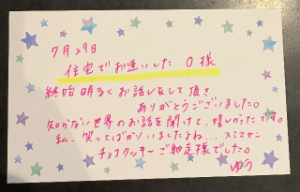 7月29日
住宅でお逢いした O様
終始明るくお話しをして頂き
ありがとうございました。
知らない世界のお話を聞けて、嬉しかったです。
私、笑ってばかりいましたよね... スミマセン
チョコクッキーご馳走様でした。
ゆう